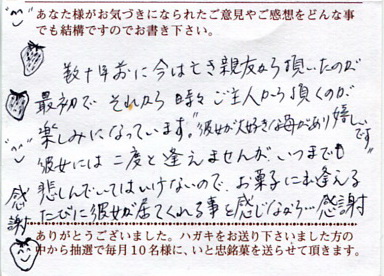 あなた様がお気づきになられたご意見やご感想をどんな事
でも結構ですのでお書き下さい。
数十年前に今は亡き親友から頂いたのが
最初で それから 時々 ご主人から頂くのが
楽しみになっています。"彼女が大好きな母があり嬉しいです
彼女には二度と逢えませんが、いつまでも
悲しんでいてはいけないので、お菓子にお逢える
たびに彼女が居てくれる事と感じながら…感謝
感謝
ありがとうございました。ハガキをお送り下さいました方の
中から抽選で毎月10名様に、いと忠銘菓を送らせて頂きます。